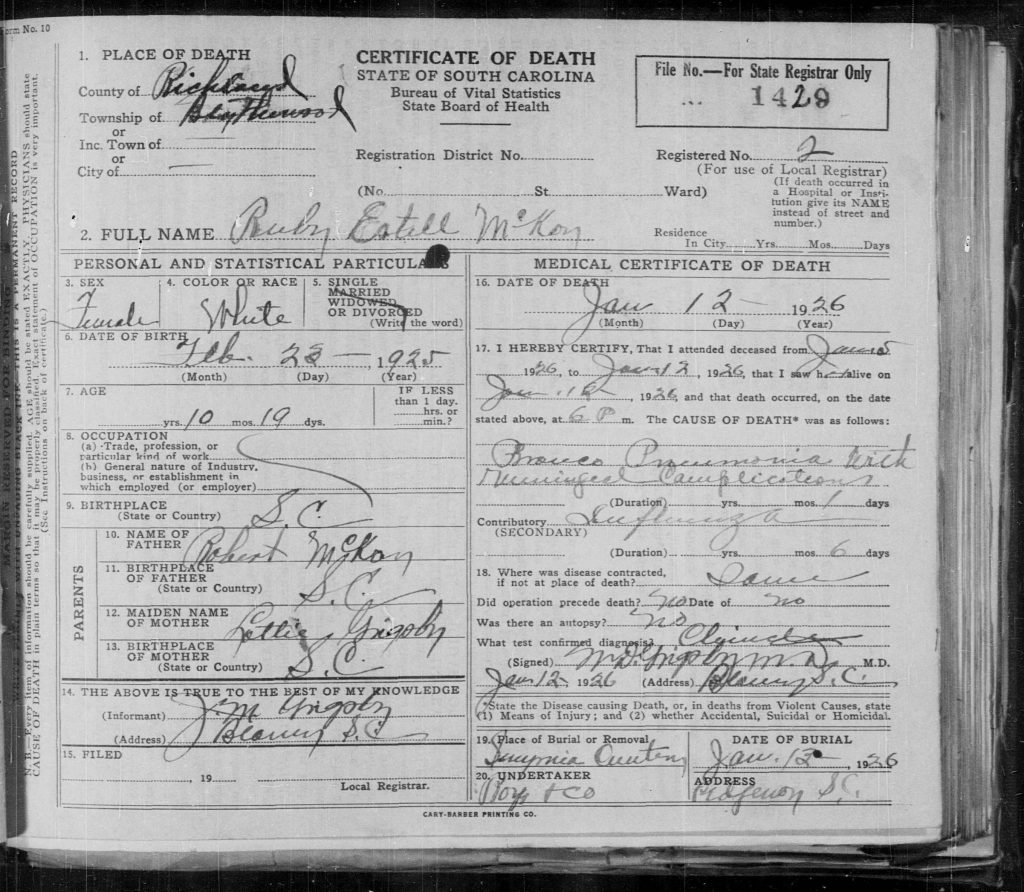 Form No. 10
1. PLACE OF DEATH
County of Richland
Township of Blythewood
or
Inc. Town of
or
City of —
CERTIFICATE OF DEATH
STATE OF SOUTH CAROLINA
Bureau of Vital Statistics
State Board of Health
File No.—For State Registrar Only
1429
Registration District No.
Registered No. 2
(For use of Local Registrar)
(No. St. Ward)
(If death occurred in
a Hospital or Insti-
tution give its NAME
instead of street and
number.)
2. FULL NAME Ruby Estell McKoy
Residence
In City Yrs. Mos. Days
PERSONAL AND STATISTICAL PARTICULARS
3. SEX
Female
4. COLOR OR RACE
White
5. SINGLE
MARRIED
WIDOWED
OR DIVORCED
(Write the word)
6. DATE OF BIRTH
Feb. 23 — 1925
(Month) (Day) (Year)
7. AGE
yrs. 10 mos. 19 dys.
IF LESS
than 1 day.
hrs. or
min.?
8. OCCUPATION
(a) Trade, profession, or
particular kind of work
(b) General nature of Industry,
business, or establishment in
which employed (or employer)
9. BIRTHPLACE
(State or Country) S. C.
PARENTS
10. NAME OF
FATHER Robert McKoy
11. BIRTHPLACE
OF FATHER
(State or Country) S. C.
12. MAIDEN NAME
OF MOTHER Lottie Grigsby
13. BIRTHPLACE
OF MOTHER
(State or Country) S. C.
14. THE ABOVE IS TRUE TO THE BEST OF MY KNOWLEDGE
(Informant) J M Grigsby
(Address) Blaney S. C.
15. FILED
19
Local Registrar.
MEDICAL CERTIFICATE OF DEATH
16. DATE OF DEATH
Jan 12 — 1926
(Month) (Day) (Year)
17. I HEREBY CERTIFY, That I attended deceased from Jan 5
1926, to Jan 12, 1926, that I saw h alive on
Jan. 12, 1926, and that death occurred, on the date
stated above, at 6 P m. The CAUSE OF DEATH* was as follows:
Bronco Pneumonia With
Meningeal Complications
(Duration) yrs. mos. 1 days
Contributory Influenza
(SECONDARY)
(Duration) yrs. mos. 6 days
18. Where was disease contracted,
if not at place of death? Same
Did operation precede death? No Date of No
Was there an autopsy? No
What test confirmed diagnosis?
(Signed) Grigsby M.D. M.D.
Jan 12, 1926 (Address) Blaney S. C.
*State the Disease causing Death, or, in deaths from Violent Causes, state
(1) Means of Injury; and (2) whether Accidental, Suicidal or Homicidal.
19. Place of Burial or Removal
Smyrnia Cemetery
DATE OF BURIAL
Jan. 13 1926
20. UNDERTAKER
& Co
ADDRESS
Ridgeway S. C.
CARY-BARBER PRINTING CO.
MARGIN RESERVED FOR BINDING
THIS IS A PERMANENT RECORD
N. B.—Every item of information should be carefully supplied. AGE should be stated EXACTLY. PHYSICIANS should state
CAUSE OF DEATH in plain terms so that it may be properly classified. Exact statement of OCCUPATION is very important.
(See Instructions on back of certificate.)